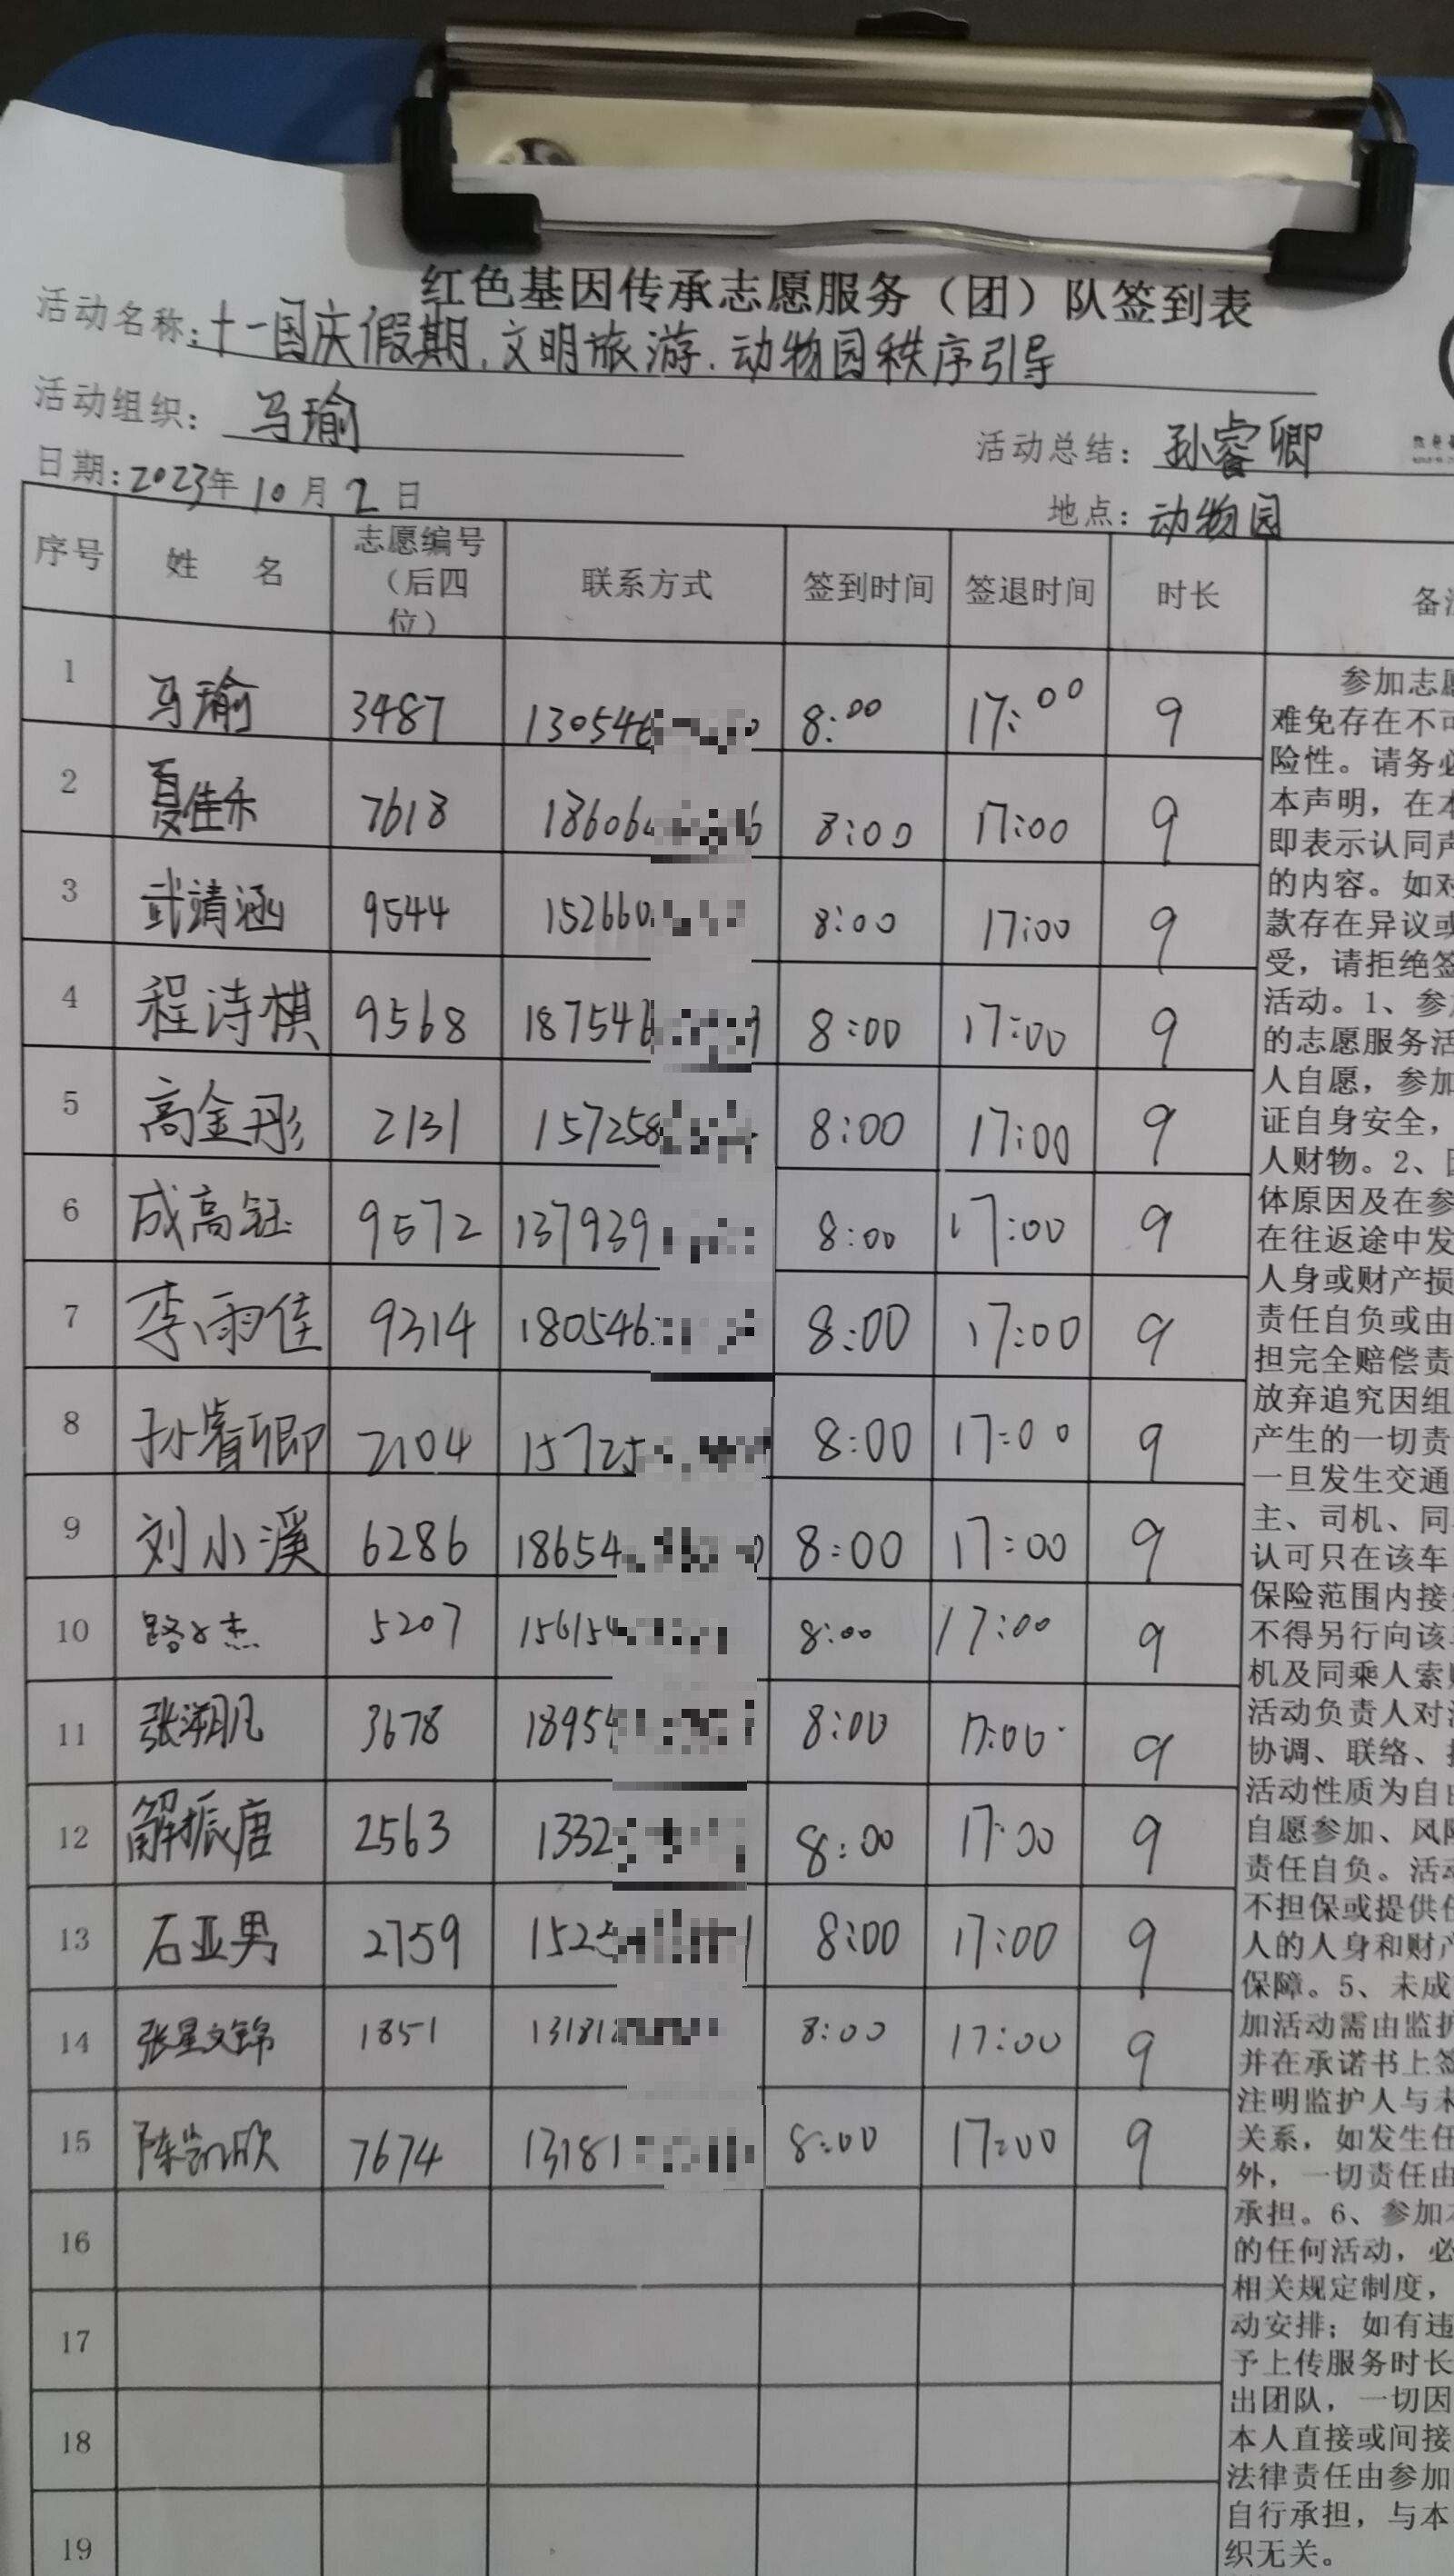 红色基因传承志愿服务（团）队签到表
活动名称：十一国庆假期、文明旅游、动物园秩序引导
活动组织：马瑜 活动总结：孙睿卿
日期：2023年10月2日 地点：动物园
序号 姓 名 志愿编号（后四位） 联系方式 签到时间 签退时间 时长
1 马瑜 3487 130546 8:00 17:00 9
2 夏佳禾 7618 18606 8:00 17:00 9
3 武靖涵 9544 152660 8:00 17:00 9
4 程诗棋 9568 18754 8:00 17:00 9
5 高金彤 2131 157258 8:00 17:00 9
6 成高钰 9572 137939 8:00 17:00 9
7 李雨佳 9314 180546 8:00 17:00 9
8 孙睿卿 2104 15725 8:00 17:00 9
9 刘小溪 6286 18654 8:00 17:00 9
10 5207 15615 8:00 17:00 9
11 张溯凡 3678 1895 8:00 17:00 9
12 解振唐 2563 1332 8:00 17:00 9
13 石亚男 2759 152 8:00 17:00 9
14 张星文锦 1851 13181 8:00 17:00 9
15 陈凯欣 7674 13181 8:00 17:00 9
16
17
18
19
参加志愿
难免存在不可
险性。请务必
本声明，在本
即表示认同声
的内容。如对
款存在异议或
受，请拒绝签
活动。1、参
的志愿服务活
人自愿，参加
证自身安全，
人财物。2、因
体原因及在参
在往返途中发
人身或财产损
责任自负或由
担完全赔偿责
放弃追究因组
产生的一切责
一旦发生交通
主、司机、同
认可只在该车
保险范围内接
不得另行向该
机及同乘人索
活动负责人对
协调、联络、
活动性质为自
自愿参加、风险
责任自负。活动
不担保或提供任
人的人身和财产
保障。5、未成
加活动需由监护
并在承诺书上签
注明监护人与未
关系，如发生任
外，一切责任由
承担。6、参加本
的任何活动，必
相关规定制度，
动安排；如有违
予上传服务时长
出团队，一切因
本人直接或间接
法律责任由参加
自行承担，与本
织无关。